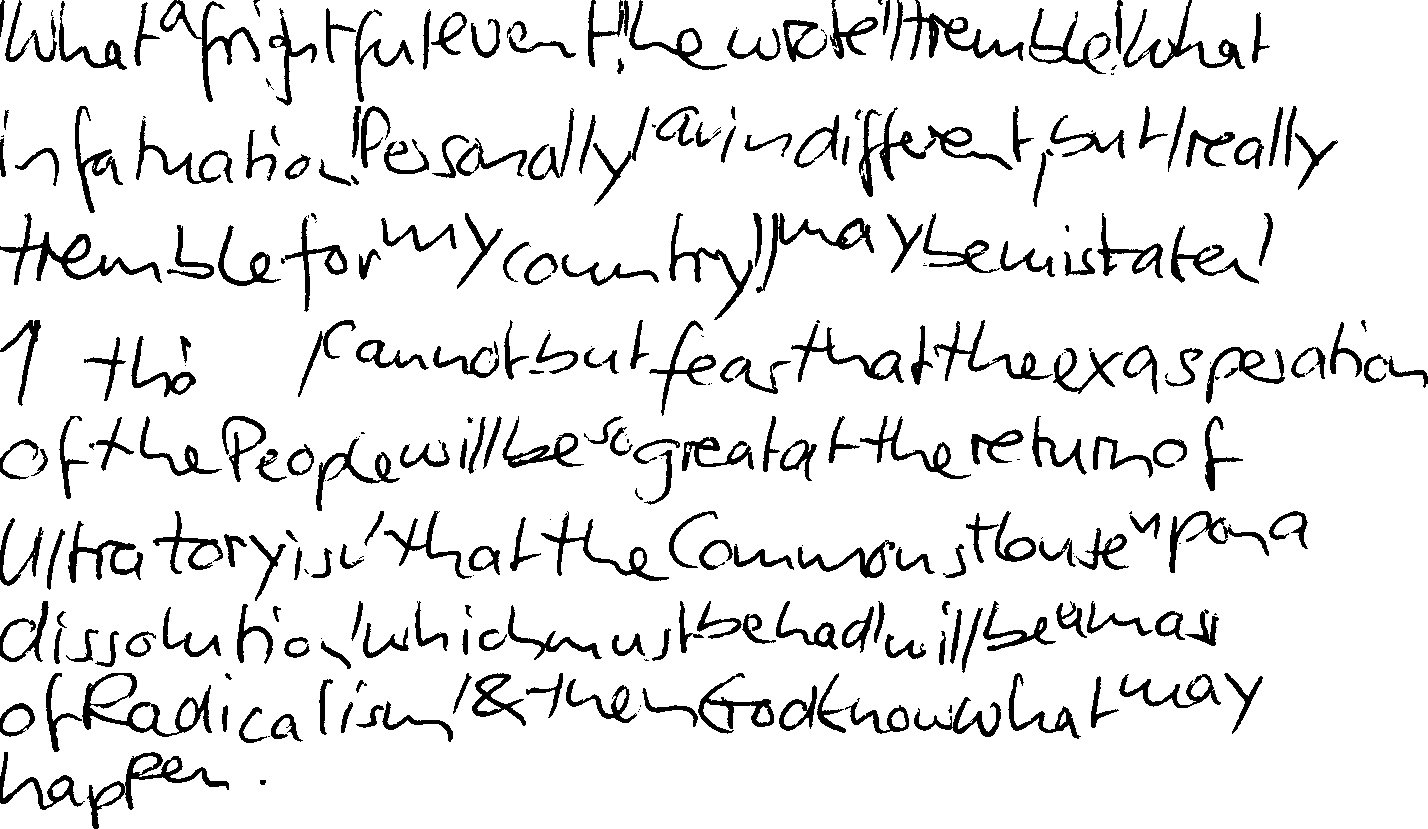 "What a frightful event!" he wrote "I tremble! What
infatuation! Personally I am indifferent, but I really
tremble for my country!" I may be mistaken '
1 tho' I cannot but fear that the exasperation
of the People will be so great at the return of
Ultra toryism ' that the Commons House upon a
dissolution ' which must be had ' will be a mass
of Radicalism ' & then God know what may
happen .